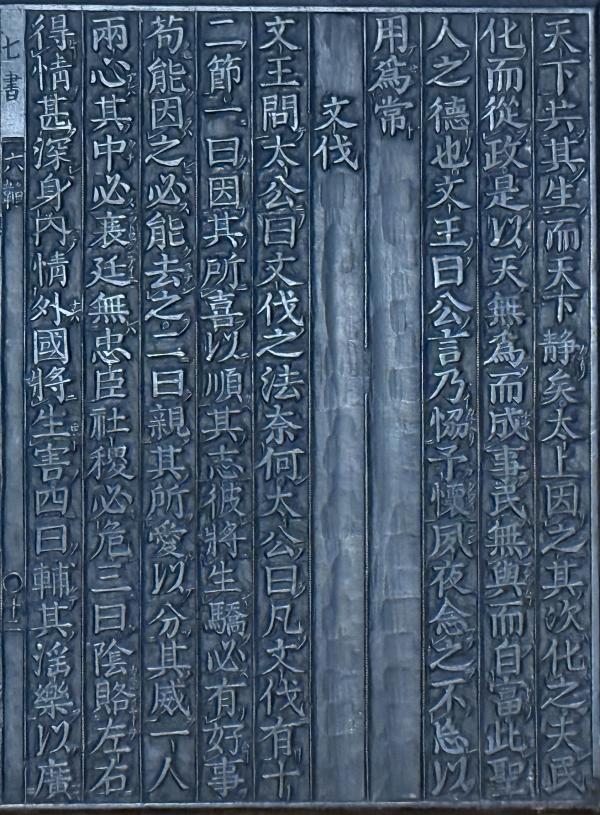 天下共其生而天下静矣太上因之其次化之夫民
化而從政是以天無為而成事民無與而自富此聖
人之德也文王曰公言乃恊予懐夙夜念之不忘以
用爲常
文伐
文王問太公曰文伐之法奈何太公曰凡文伐有十
二節一曰因其所喜以順其志彼將生驕必有好事
茍能因之必能去之二曰親其所愛以分其威一人
兩心其中必衰廷無忠臣社稷必危三曰陰賂左右
得情甚深身內情外國將生害四曰輔其滛樂以廣
七書
六韜
十二